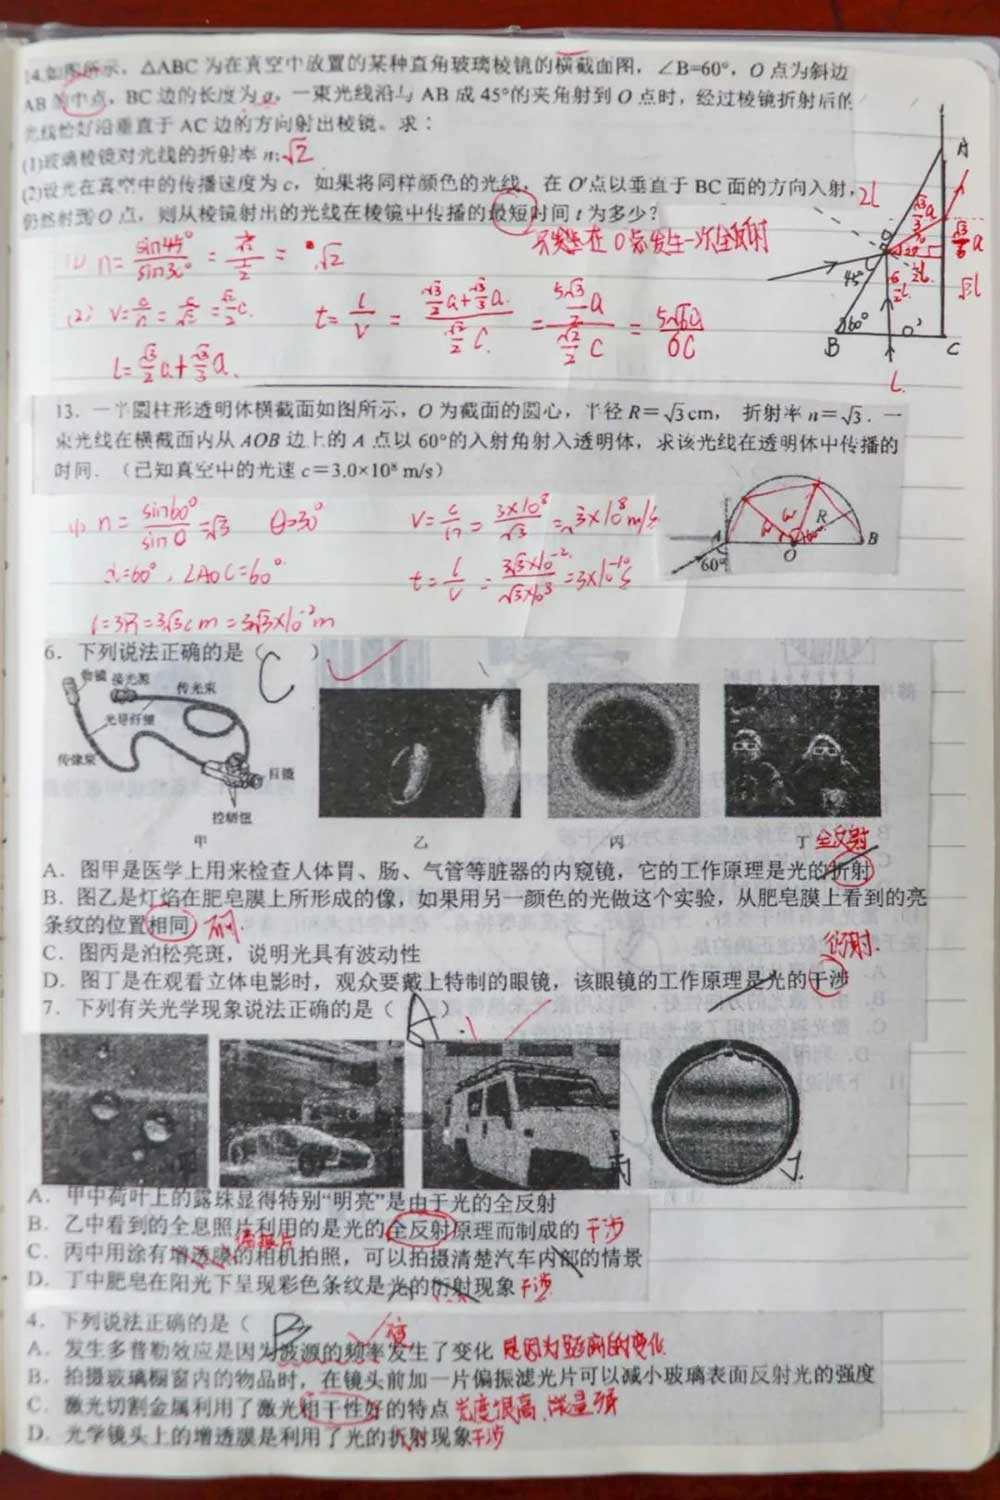 14.如图所示，△ABC 为在真空中放置的某种直角玻璃棱镜的横截面图，∠B=60°，O 点为斜边
AB 的中点，BC 边的长度为 a。一束光线沿与 AB 成 45°的夹角射到 O 点时，经过棱镜折射后的
光线恰好沿垂直于 AC 边的方向射出棱镜。求：
(1)玻璃棱镜对光线的折射率 n; √2
(2)设光在真空中的传播速度为 c，如果将同样颜色的光线，在 O′点以垂直于 BC 面的方向入射，
仍然射到 O 点，则从棱镜射出的光线在棱镜中传播的最短时间 t 为多少？
在 O 点发生一次全反射
(1) n= sin45°/sin30° = = √2
(2) V= c/n = c/√2 = √2/2 c. t= l/v = (√3/2 a+√3/3 a)/(√2/2 C) = = 
l= √3/2 a+√3/3 a.
A
2l
O
45°
60°
B
O'
C
L
13．一半圆柱形透明体横截面如图所示，O 为截面的圆心，半径 R＝√3 cm， 折射率 n＝√3．一
束光线在横截面内从 AOB 边上的 A 点以 60°的入射角射入透明体，求该光线在透明体中传播的
时间．（已知真空中的光速 c＝3.0×10⁸ m/s）
(1) n= sin60°/sinθ =√3 θ=30° V= c/n = 3×10⁸/√3 =√3×10⁸m/s
α=60°，∠AOC=60° t= l/v = 3√3×10⁻²/√3×10⁸ =3×10⁻¹⁰s
l=3R=3√3cm=3√3×10⁻²m
A
60°
O
R
B
6．下列说法正确的是（ C ）
物镜 接光源 传光束
光导纤维
传像束
目镜
控制钮
甲 乙 丙 丁 全反射
A．图甲是医学上用来检查人体胃、肠、气管等脏器的内窥镜，它的工作原理是光的折射
B．图乙是灯焰在肥皂膜上所形成的像，如果用另一颜色的光做这个实验，从肥皂膜上看到的亮
条纹的位置相同
衍射.
C．图丙是泊松亮斑，说明光具有波动性
D．图丁是在观看立体电影时，观众要戴上特制的眼镜，该眼镜的工作原理是光的干涉
7．下列有关光学现象说法正确的是（ A ）
丙 丁
A．甲中荷叶上的露珠显得特别“明亮”是由于光的全反射
B．乙中看到的全息照片利用的是光的全反射原理而制成的 干涉
偏振片
C．丙中用涂有增透膜的相机拍照，可以拍摄清楚汽车内部的情景
D．丁中肥皂在阳光下呈现彩色条纹是光的衍射现象 干涉
4．下列说法正确的是（ B
A．发生多普勒效应是因为波源的频率发生了变化 是因为距离的变化
B．拍摄玻璃橱窗内的物品时，在镜头前加一片偏振滤光片可以减小玻璃表面反射光的强度
C．激光切割金属利用了激光相干性好的特点 亮度很高、能量强
D．光学镜头上的增透膜是利用了光的折射现象 干涉